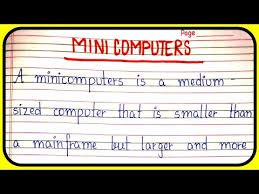 Page
MINI COMPUTERS
A minicomputers is a medium-
sized computer that is smaller than
a mainframe but larger and more